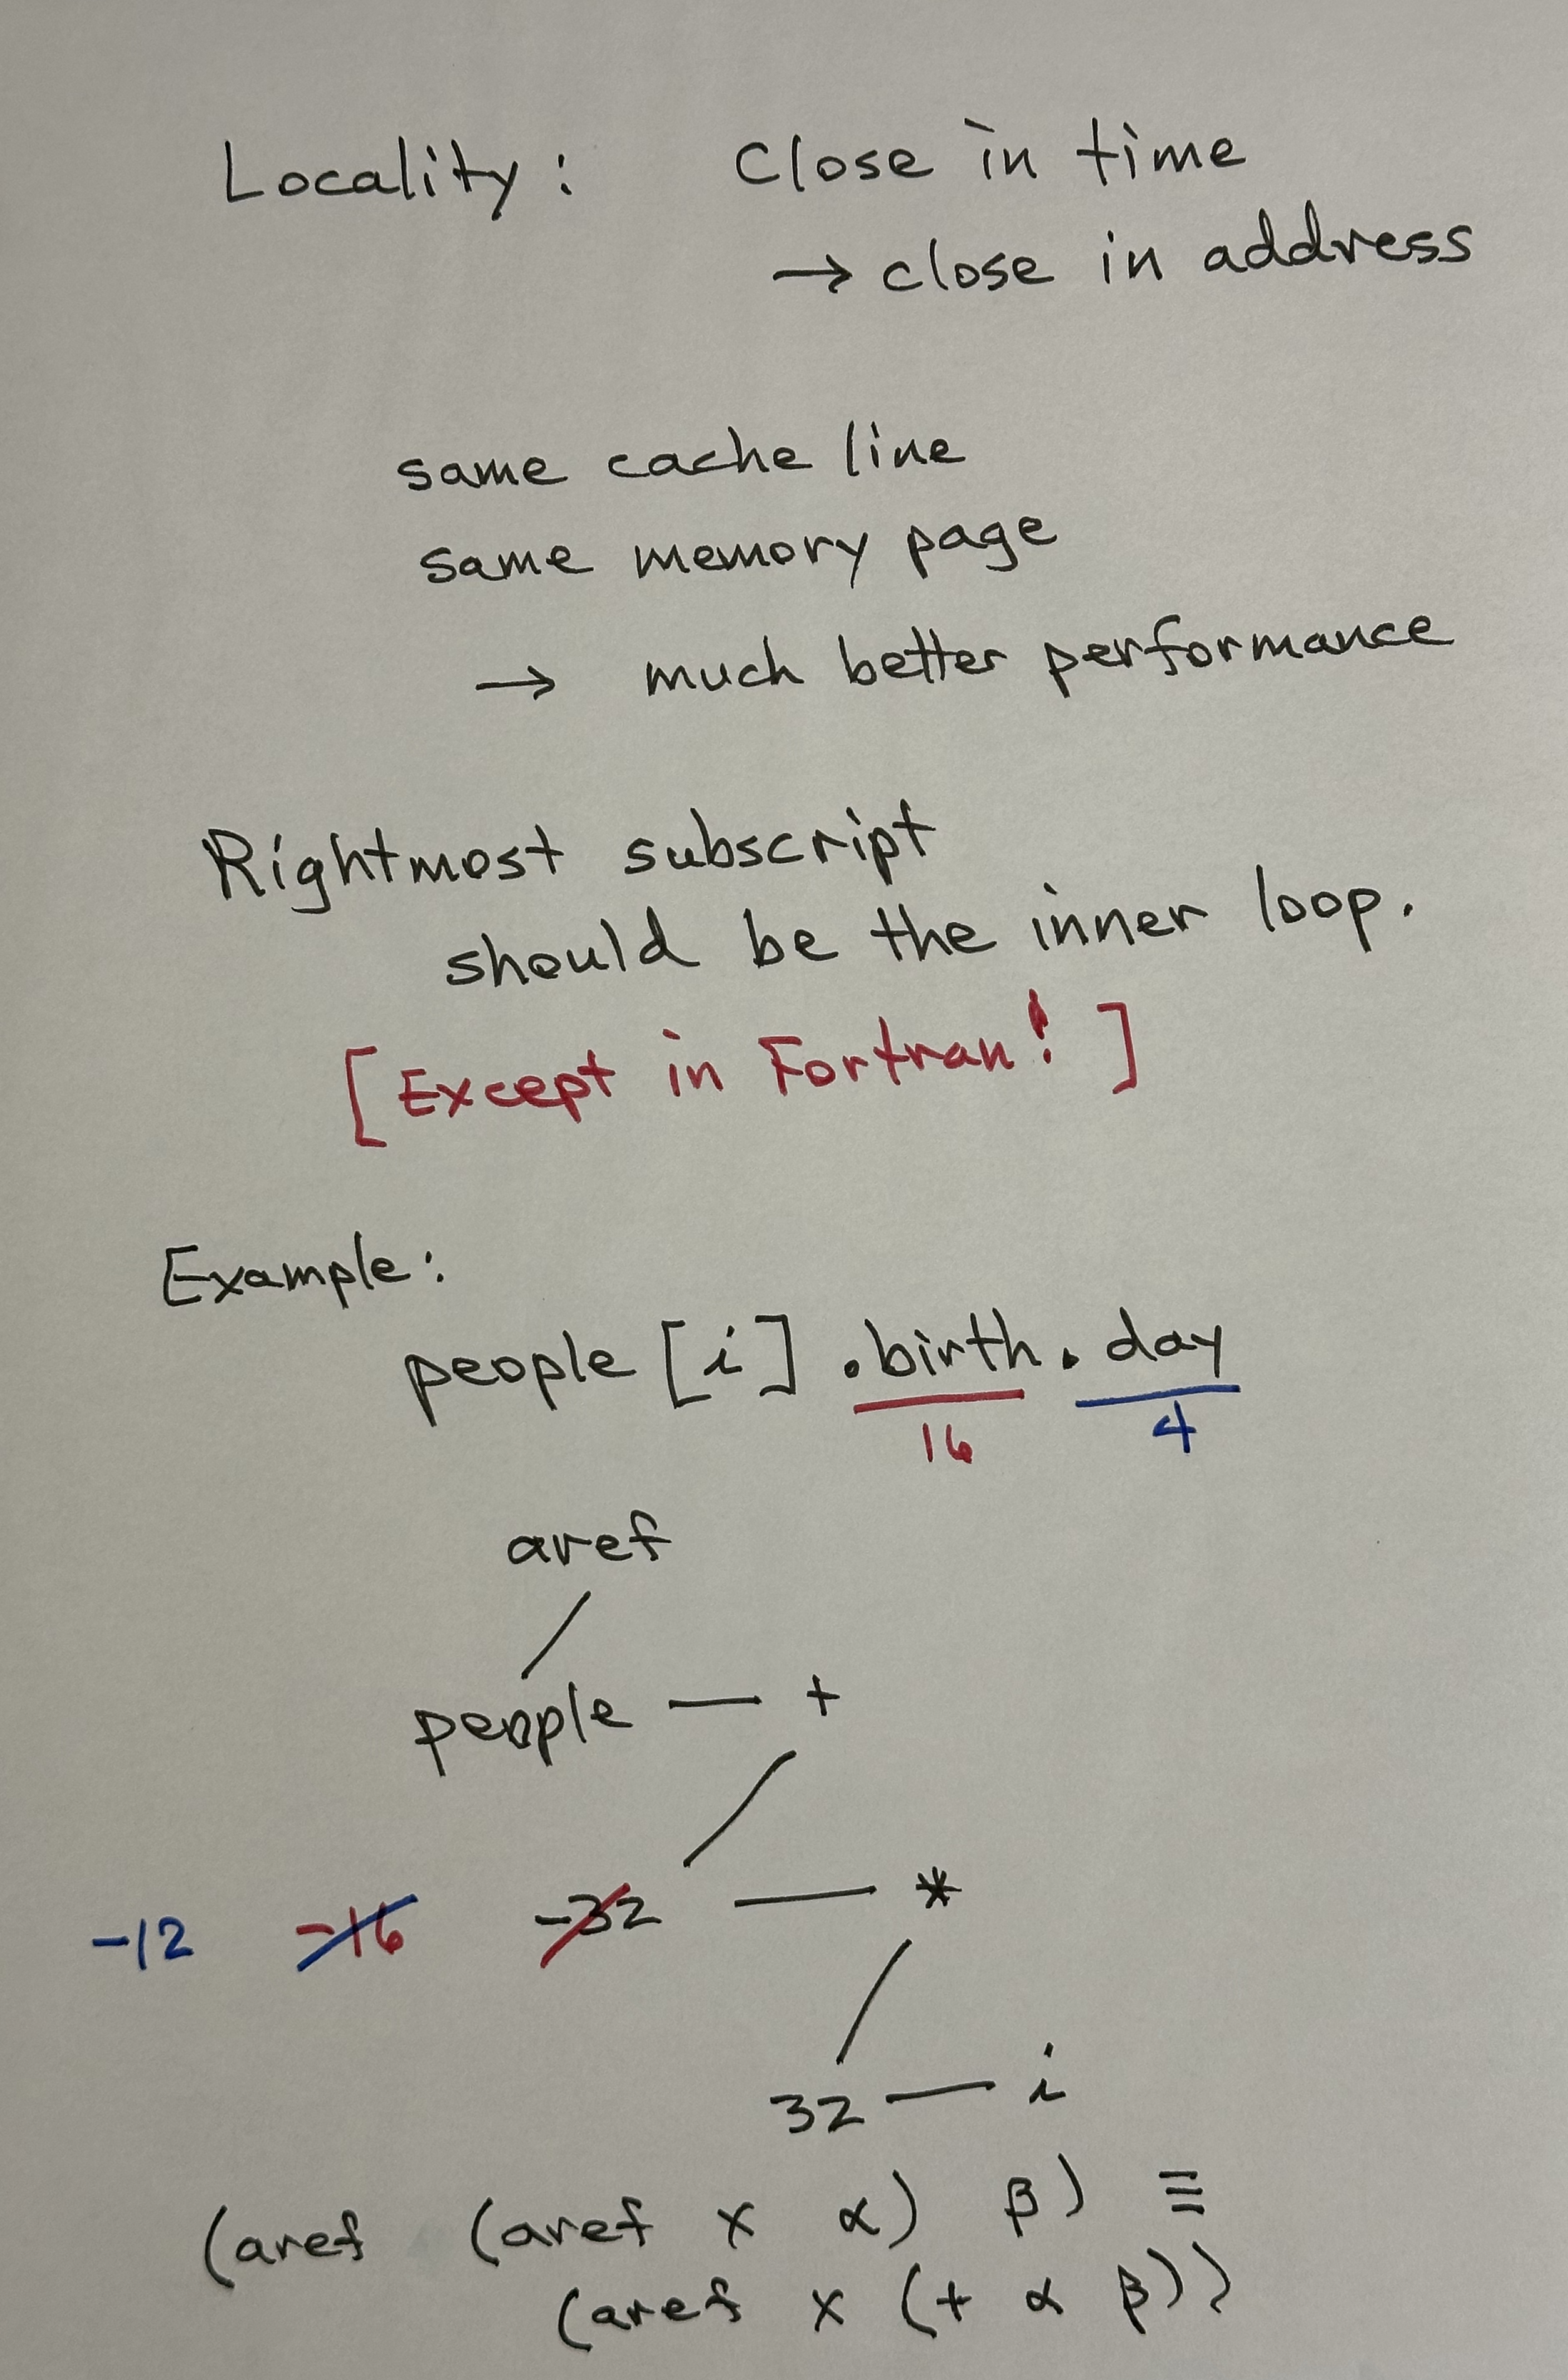 Locality: Close in time
→ close in address
same cache line
same memory page
→ much better performance
Rightmost subscript
should be the inner loop.
[Except in Fortran!]
Example:
people [i] .birth. day
16 4
aref
people — +
-12 -16 -32 — *
32 — i
(aref (aref x α) β) ≡
(aref x (+ α β))